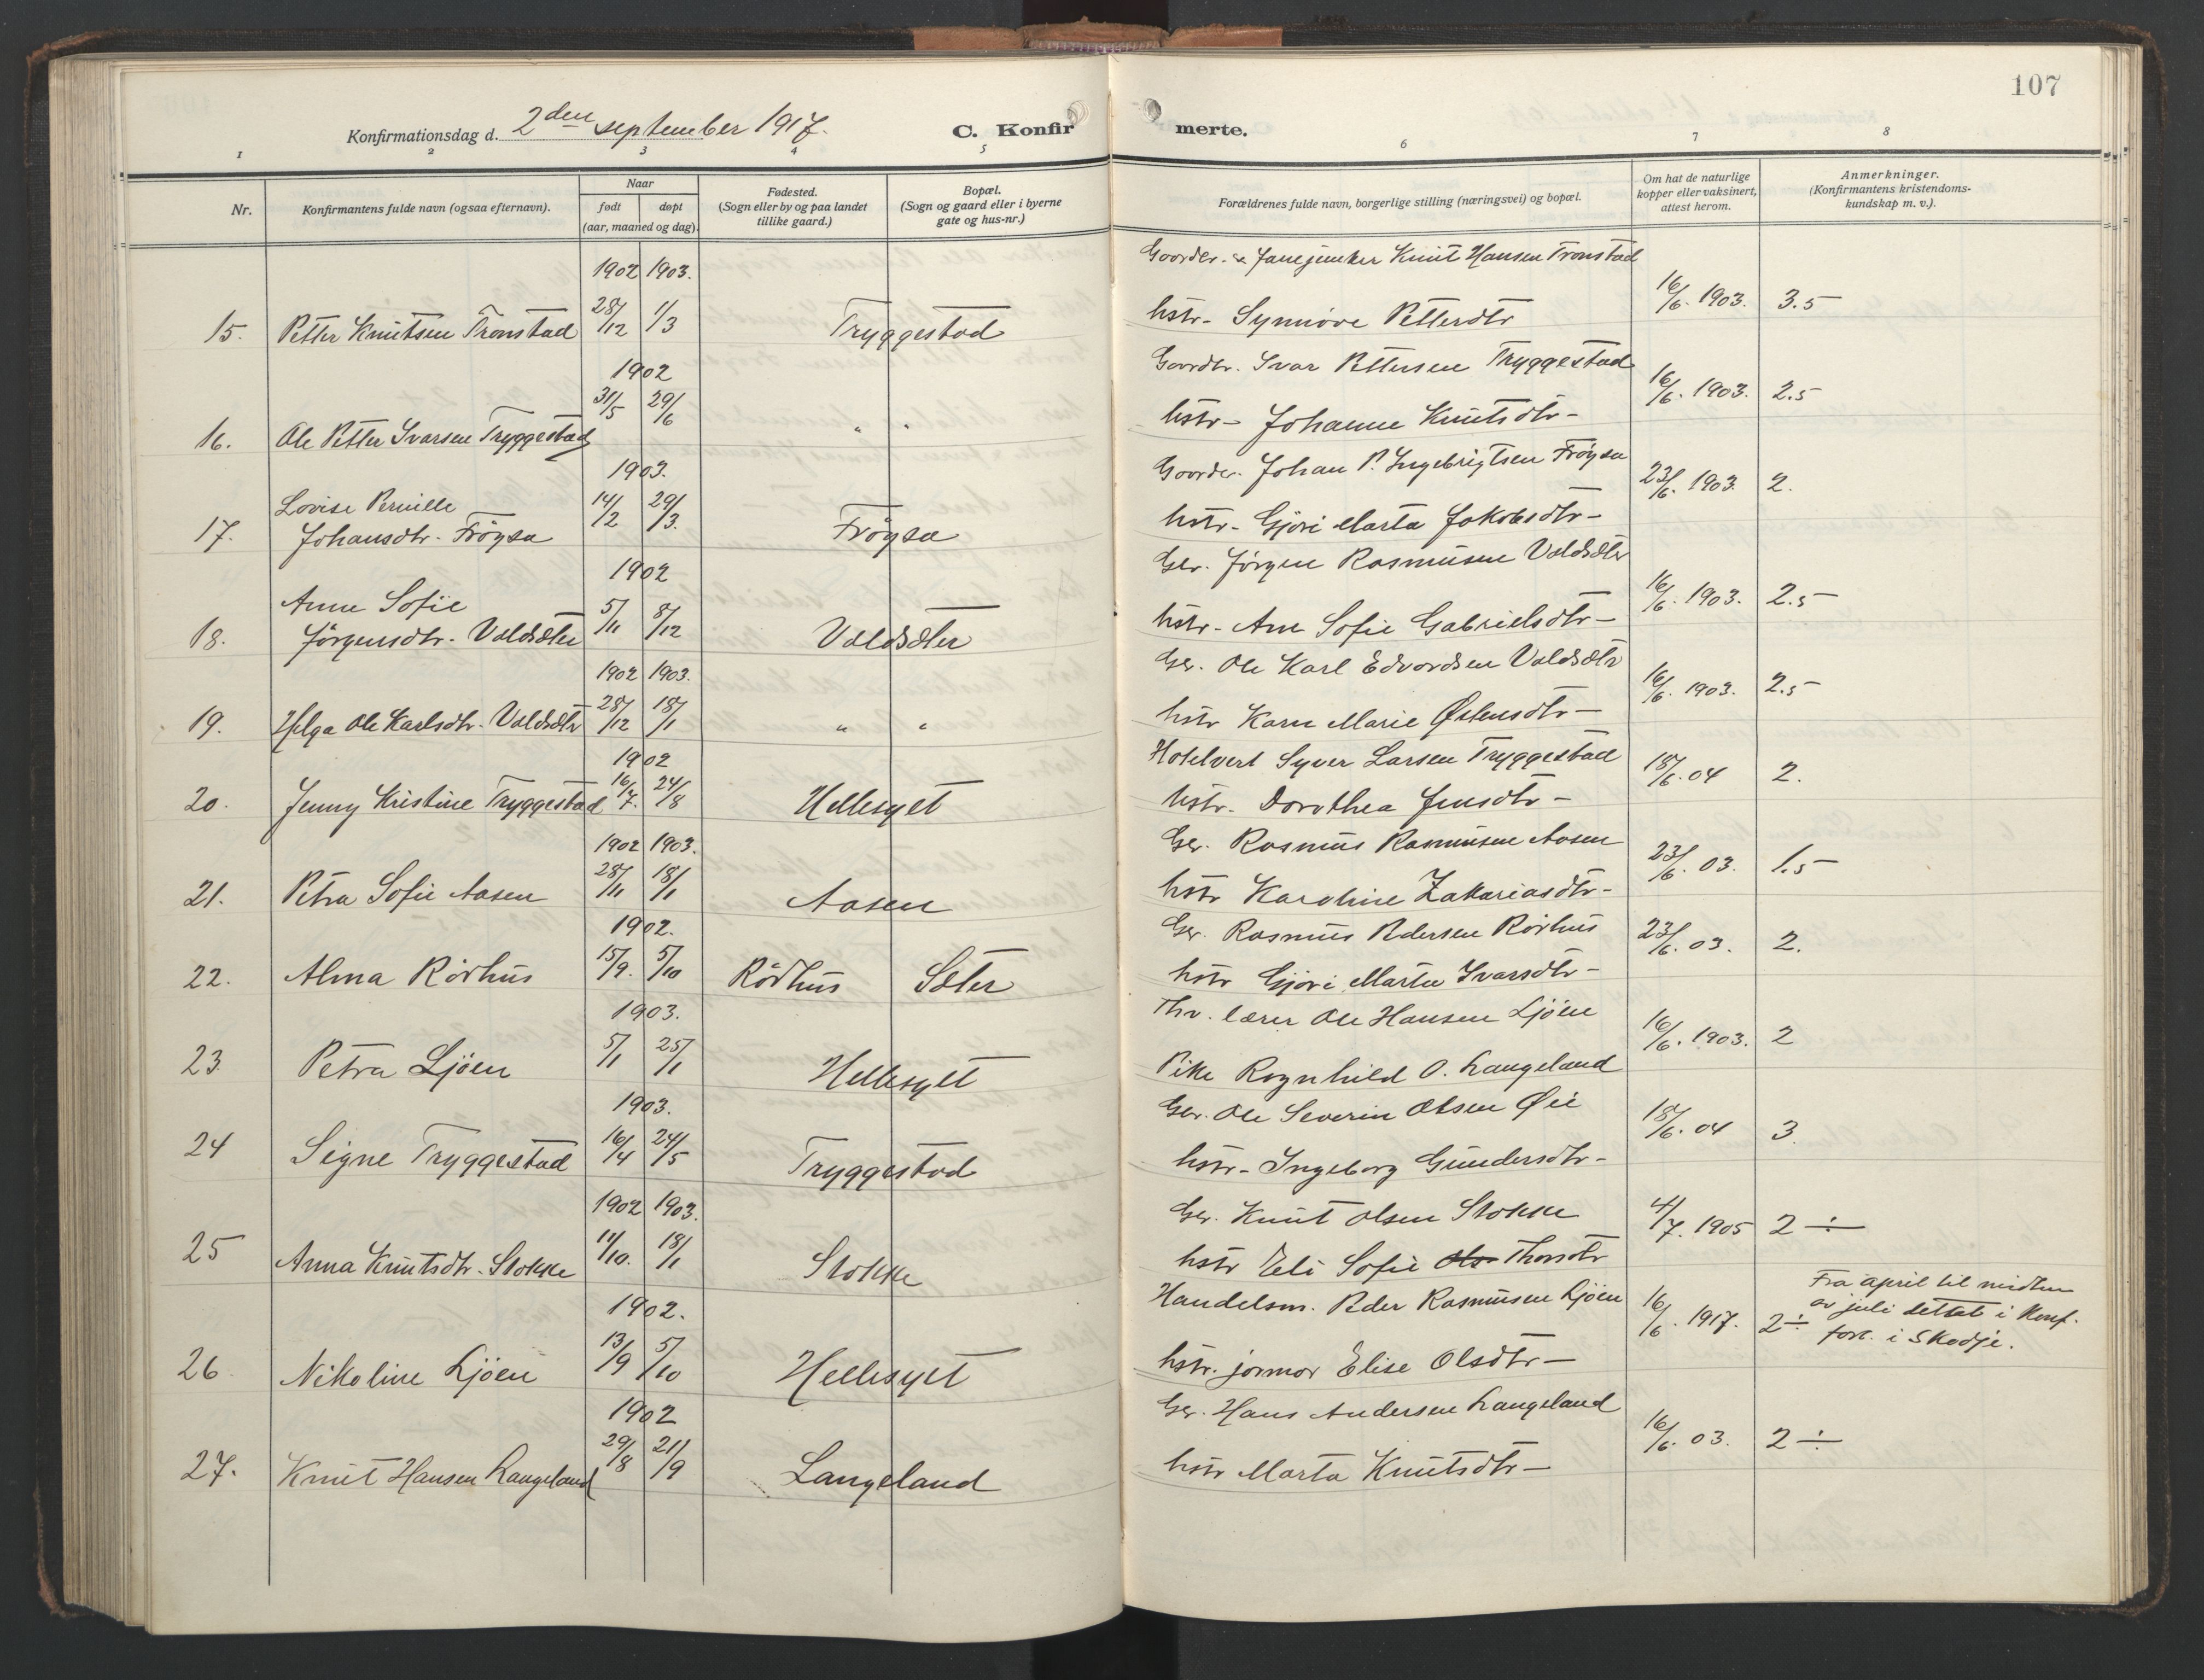 107
Konfirmationsdag d. 2den september 1917.
C. Konfirmerte.
1 2 3 4 5 6 7 8
Nr.
Konfirmantens fulde navn (ogsaa efternavn).
Naar
født døpt
(aar, maaned og dag).
Fødested.
(Sogn eller by og paa landet
tillike gaard.)
Bopæl.
(Sogn og gaard eller i byerne
gate og hus-nr.)
Forældrenes fulde navn, borgerlige stilling (næringsvei) og bopæl.
Om hat de naturlige
kopper eller vaksinert,
attest herom.
Anmerkninger.
(Konfirmantens kristendoms-
kundskap m. v.).
1902 1903. Knut Hansen Tronstad
15. Petter Knutsen Tronstad 28/12 1/3 Tryggestad hstr. Synnøve Petterdtr 16/6. 1903. 3.5
1902 Gaardbr. Ivar Pettersen Tryggestad
16. Ole Petter Ivarsen Tryggestad 31/5 29/6 " " hstr- Johanne Knutsdtr- 16/6. 1903. 2.5
1903. Gaardbr. Johan P. Ingebrigtsen Frøysa
Lovise Pernille
17. Johansdtr. Frøysa 14/2 29/3. Frøysa hstr- Gjøri Marta Jakobsdtr- 23/6. 1903. 2.
1902 Gbr. Jørgen Rasmusen Valdsæter
Anne Sofie
18. Jørgensdtr. Valdsæter 5/11 8/12 Valdsæter hstr- Ane Sofie Gabrielsdtr- 16/6. 1903. 2.5
1902 1903. Gbr. Ole Karl Edvardsen Valdsætr
19. Helga Ole Karlsdtr. Valdsætr 28/12 18/1 " " hstr Karn Marie Østensdtr- 16/6. 1903. 2.5
1902 Hotelvert Syver Larsen Tryggestad
20. Jenny Kristine Tryggestad 16/7. 24/8 Hellesylt hstr. Dorothea Jensdtr- 18/6. 04 2.
1902 1903. Gbr. Rasmus Rasmusen Aasen
21. Petra Sofie Aasen 28/11 18/1 Aasen hstr Karoline Zakariasdtr- 23/6. 03. 1.5
1902. Gbr. Rasmus Pedersen Rørhus
22. Alma Rørhus 15/9. 5/10 Rørhus Sæter hstr Gjøri Marta Ivarsdtr- 23/6. 03. 2.
1903. Fhv. lærer Ole Hansen Ljøen
23. Petra Ljøen 5/1 25/1 Hellesylt Pike Ragnhild O. Langeland 16/6. 1903. 2
1903. Gbr. Ole Severin Olsen Øie
24 Signe Tryggestad 16/4 24/5 Tryggestad hstr- Ingeborg Gundersdtr- 18/6. 04 3.
1902 1903. Gbr. Knut Olsen Stokke
25 Anna Knutsdtr. Stokke 11/10. 18/1 Stokke hstr Eli Sofie Thorsdtr 4/7. 1905 2 ÷
1902. Handelsm. Peder Rasmusen Ljøen
26. Nikoline Ljøen 13/9 5/10 Hellesylt hstr. jormor Elise Olsdtr- 16/6. 1917. 2÷
Fra april til midten
av juli deltat i Konf.
forb. i Skodje.
1902 Gbr. Hans Andersen Langeland
27. Knut Hansen Langeland 29/8 21/9 Langeland hstr Marta Knutsdtr- 16/6. 03. 2 ÷